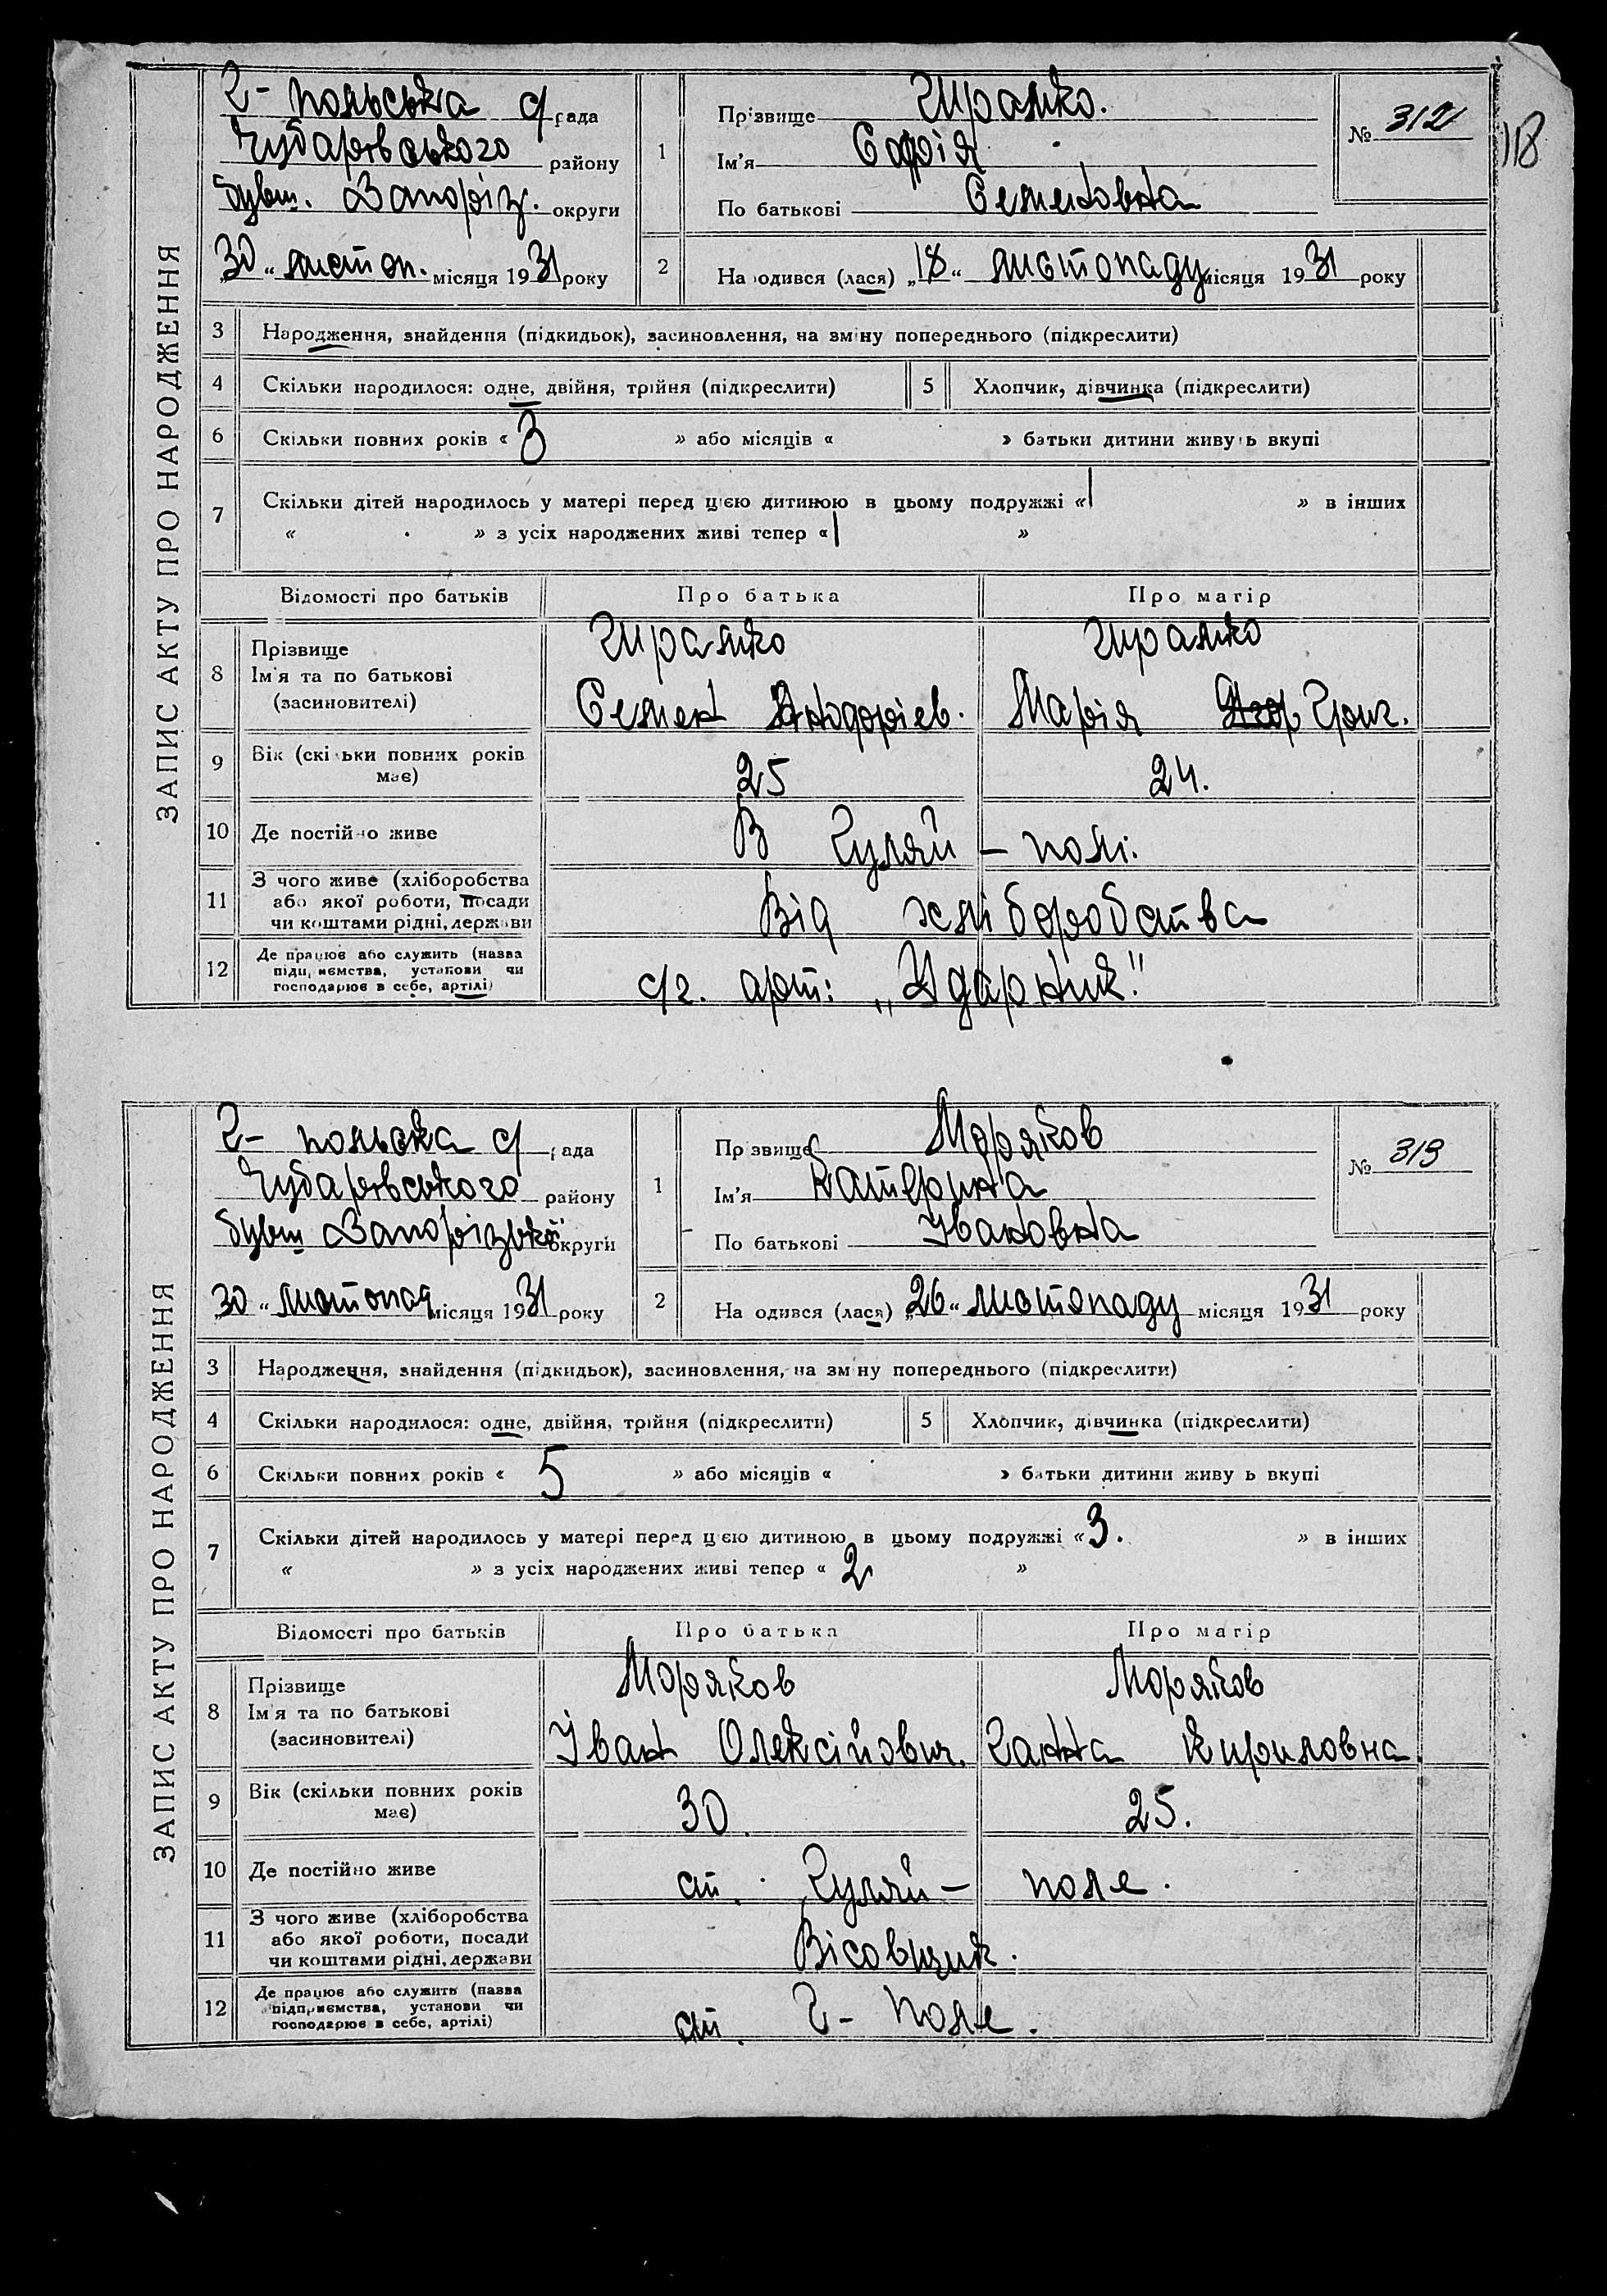 118
ЗАПИС АКТУ ПРО НАРОДЖЕННЯ
Г- польська с/рада
Чубарівського району
бувш. Запоріз. округи
„30“ листоп. місяця 1931 року
1
Прізвище
Ім'я Софія
По батькові Семеновна
№ 312
2 Народився (лася) „18“ листопаду місяця 1931 року
3 Народження, знайдення (підкидьок), засиновлення, на зміну попереднього (підкреслити)
4 Скільки народилося: одне, двійня, трійня (підкреслити) 5 Хлопчик, дівчинка (підкреслити)
6 Скільки повних років « 3 » або місяців « » батьки дитини живуть вкупі
7 Скільки дітей народилось у матері перед цією дитиною в цьому подружжі «1 » в інших
« » з усіх народжених живі тепер «1 »
Відомості про батьків Про батька Про матір
8 Прізвище
Ім'я та по батькові
(засиновителі)
Семен
Марія Григ.
9 Вік (скільки повних років має) 25 24.
10 Де постійно живе В Гуляй - полі.
11 З чого живе (хліборобства
або якої роботи, посади
чи коштами рідні, держави
Від хліборобства
12 Де працює або служить (назва
підприємства, установи чи
господарює в себе, артілі)
с/г. арт: „Ударник"
ЗАПИС АКТУ ПРО НАРОДЖЕННЯ
Г- польска с/рада
Чубарівського району
бувш Запорізької округи
„30“ листопад місяця 1931 року
1
Прізвище Моряков
Ім'я Катерина
По батькові Івановна
№ 313
2 Народився (лася) „26“ листопаду місяця 1931 року
3 Народження, знайдення (підкидьок), засиновлення, на зміну попереднього (підкреслити)
4 Скільки народилося: одне, двійня, трійня (підкреслити) 5 Хлопчик, дівчинка (підкреслити)
6 Скільки повних років « 5 » або місяців « » батьки дитини живуть вкупі
7 Скільки дітей народилось у матері перед цією дитиною в цьому подружжі «3. » в інших
« » з усіх народжених живі тепер «2 »
Відомості про батьків Про батька Про матір
8 Прізвище
Ім'я та по батькові
(засиновителі)
Моряков Моряков
Іван Олексійович. Ганна Кириловна.
9 Вік (скільки повних років має) 30 25.
10 Де постійно живе ст. Гуляй - поле.
11 З чого живе (хліборобства
або якої роботи, посади
чи коштами рідні, держави
Вісовщик.
12 Де працює або служить (назва
підприємства, установи чи
господарює в себе, артілі)
ст. Г- Поле.